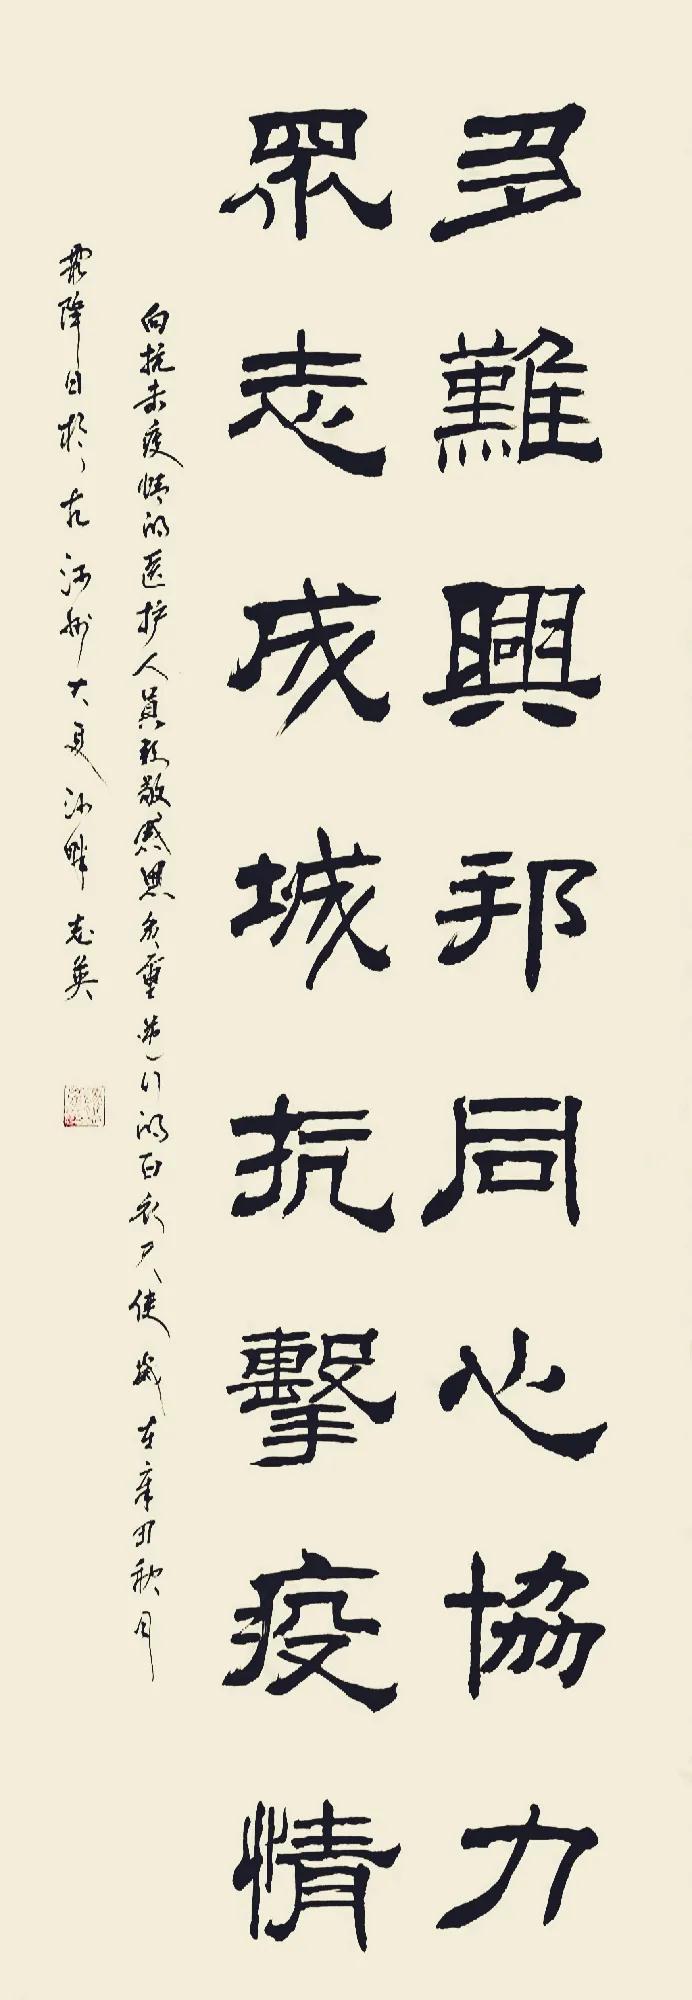 多難興邦同心協力
眾志成城抗擊疫情
向抗击疫情的医护人員致敬感恩负重前行的白衣天使 歲在辛丑秋月
霜降日於古河州大夏河畔 志英